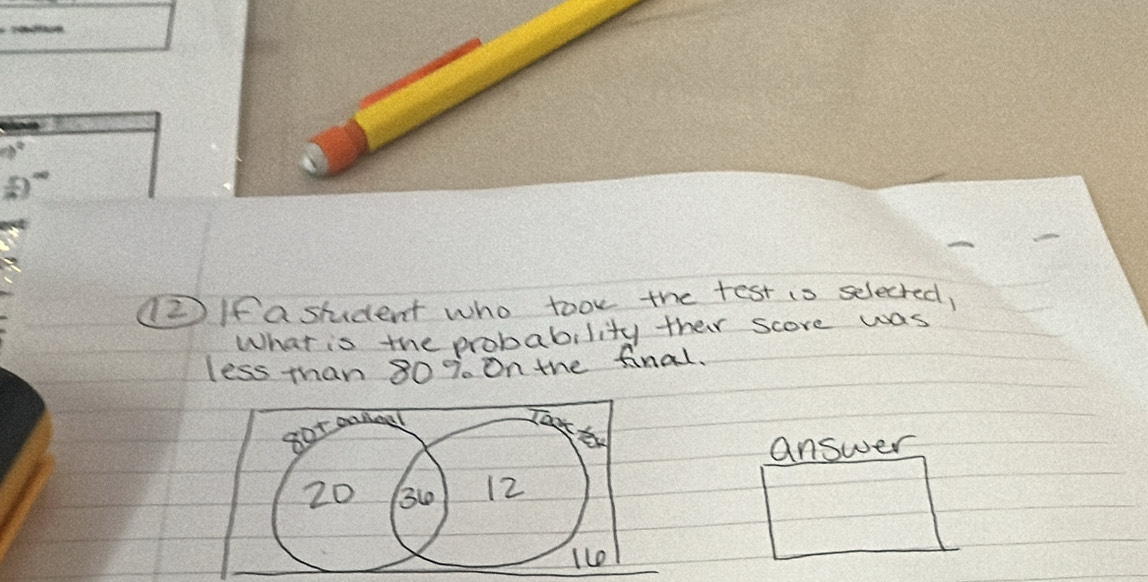 12 If a student who took the test is selected,
What is the probability their score was
less than 80% on the final.
80+ on final
Took
20 36 12
16
answer